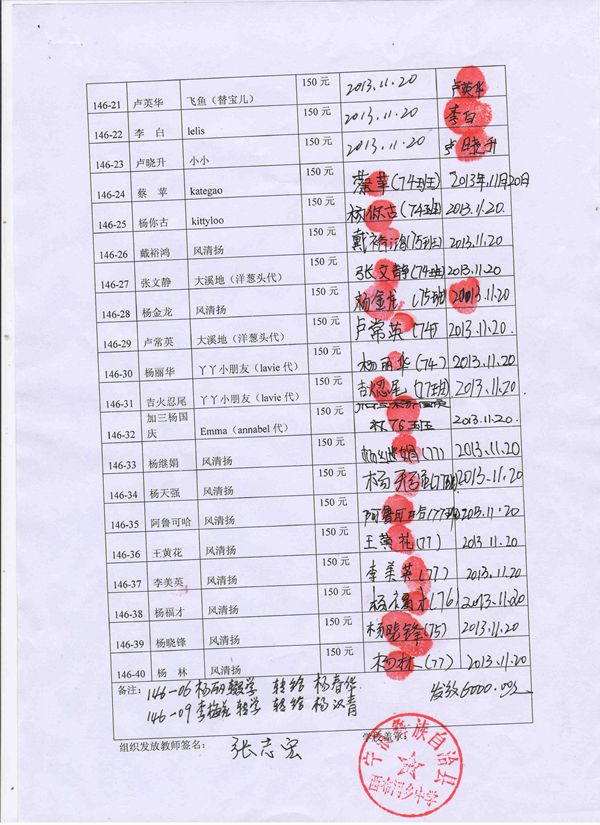 146-21 卢英华 飞鱼（替宝儿） 150 元 2013.11.20 卢英华
146-22 李 白 lelis 150 元 2013.11.20 李白
146-23 卢晓升 小小 150 元 2013.11.20 卢晓升
146-24 蔡 苹 kategao 150 元 蔡苹(74班) 2013年11月20日
146-25 杨你古 kittyloo 150 元 杨你古(74班) 2013.11.20.
146-26 戴裕鸿 风清扬 150 元 戴裕鸿(75班) 2013.11.20
146-27 张文静 大溪地（洋葱头代） 150 元 张文静(74班) 2013.11.20
146-28 杨金龙 风清扬 150 元 杨金龙(75班) 2013.11.20
146-29 卢常英 大溪地（洋葱头代） 150 元 卢常英(74) 2013.11.20.
146-30 杨丽华 丫丫小朋友（lavie 代） 150 元 杨丽华(74) 2013.11.20
146-31 吉火忍尾 丫丫小朋友（lavie 代） 150 元 (77班) 2013.11.20
146-32 加三杨国庆 Emma（annabel 代） 150 元 2013.11.20.
146-33 杨继娟 风清扬 150 元 杨继娟(77) 2013.11.20
146-34 杨天强 风清扬 150 元 杨天强(77班) 2013.11.20
146-35 阿鲁可哈 风清扬 150 元 阿鲁可哈(77班) 2013.11.20
146-36 王黄花 风清扬 150 元 王黄花(77) 2013.11.20
146-37 李美英 风清扬 150 元 李美英(77) 2013.11.20
146-38 杨福才 风清扬 150 元 杨福才(76) 2013.11.20
146-39 杨晓锋 风清扬 150 元 杨晓锋(75) 2013.11.20
146-40 杨 林 风清扬 150 元 杨林(77) 2013.11.20
备注：146-06 杨丽辍学 转给 杨春华 发放6000.00元
146-09 李梅花转学 转给 杨汉青
组织发放教师签名： 张志宏 学校盖章：
宁蒗彝族自治县
西布河乡中学